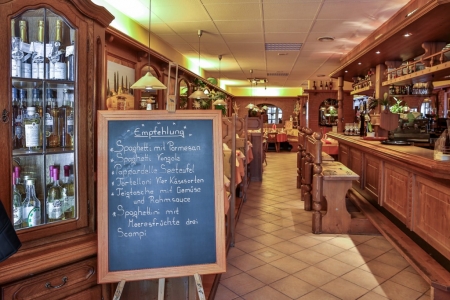 Empfehlung
Spaghetti mit Parmesan
Spaghetti Vongole
Pappardelle Seeteufel
Tortelloni Vier Käsesorten
Teigtasche mit Gemüse
und Rahmsauce
Spaghettini mit
Meeresfrüchte drei
Scampi